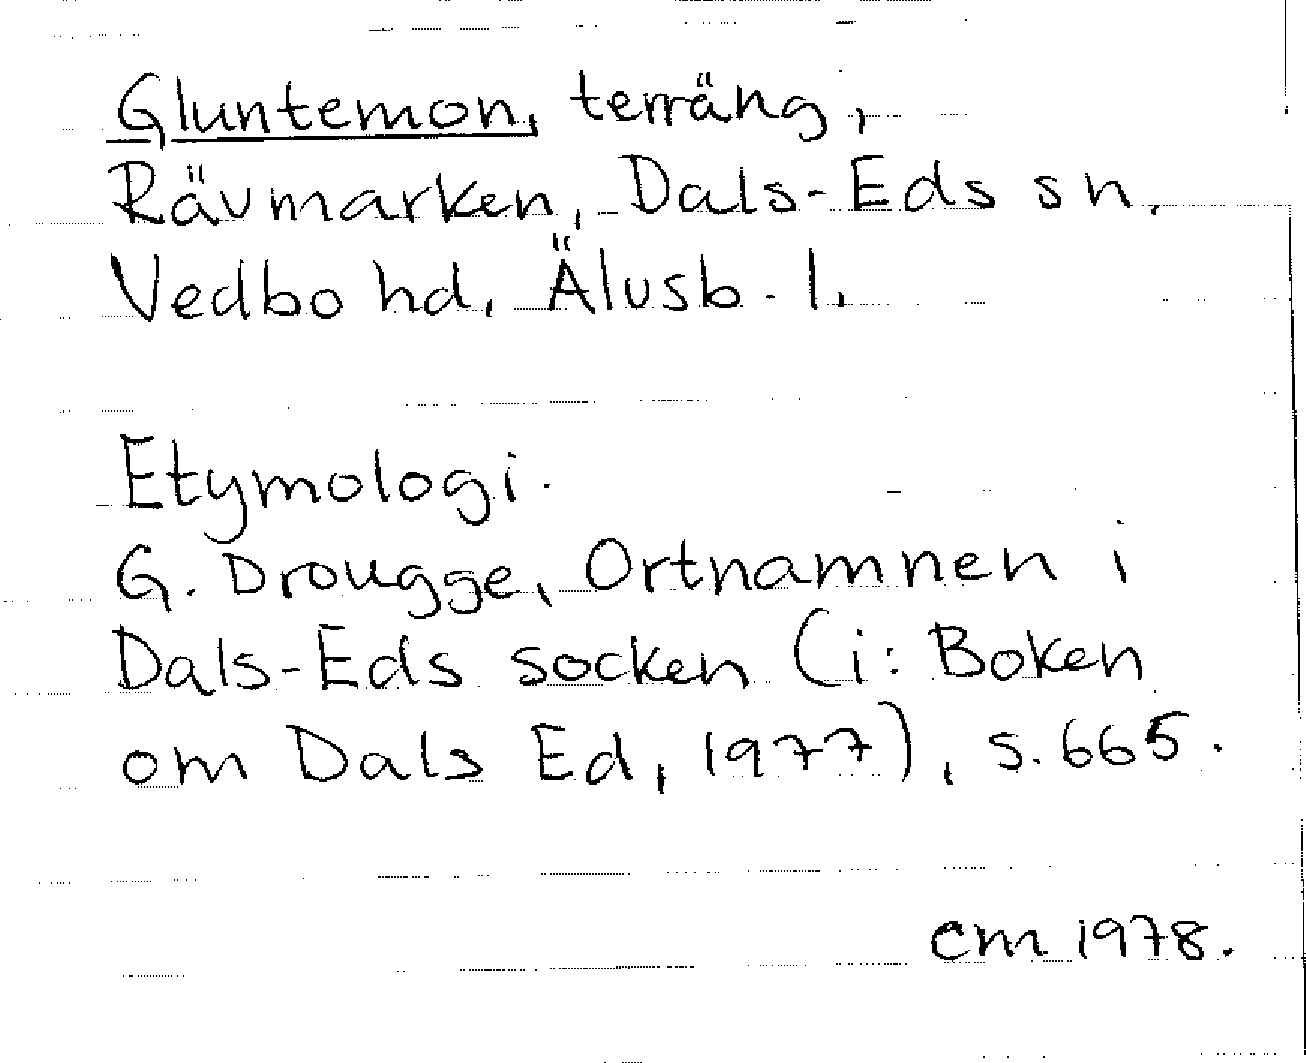 Gluntemon, terräng,
Rävmarken, Dals-Eds sn,
Vedbo hd, Älvsb. l.
Etymologi.
G. Drougge, Ortnamnen i
Dals-Eds socken (i: Boken
om Dals Ed, 1977), s. 665.
CM 1978.